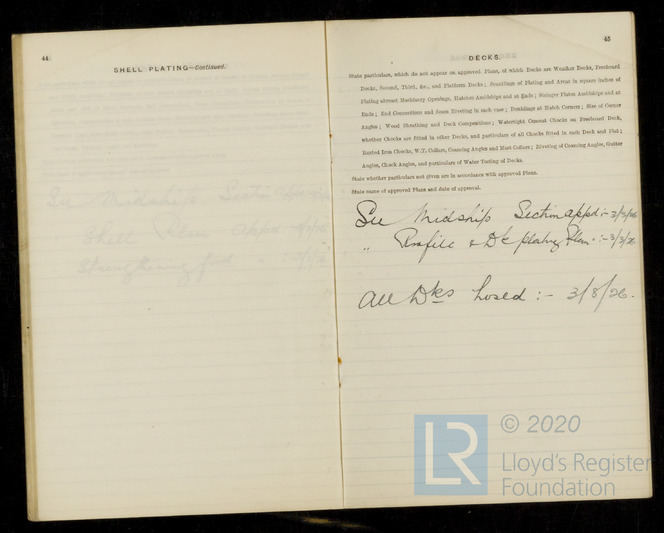 44
SHELL PLATING—Continued.
45
DECKS.
State particulars, which do not appear on approved Plans, of which Decks are Weather Decks, Freeboard
Decks, Second, Third, &c., and Platform Decks; Scantlings of Plating and Areas in square inches of
Plating abreast Machinery Openings, Hatches Amidships and at Ends; Stringer Plates Amidships and at
Ends; End Connections and Seam Riveting in each case; Doublings at Hatch Corners; Size of Corner
Angles; Wood Sheathing and Deck Compositions; Watertight Cement Chocks on Freeboard Deck,
whether Chocks are fitted in other Decks, and particulars of all Chocks fitted in each Deck and Flat;
Rusted Iron Chocks, W.T. Collars, Coaming Angles and Mast Collars; Riveting of Coaming Angles, Gutter
Angles, Chock Angles, and particulars of Water Testing of Decks.
State whether particulars not given are in accordance with approved Plans.
State name of approved Plans and date of approval.
See Midship Section appd:- 3/3/26
" Profile & Dk plating Plan :- 3/3/26
All Dks hosed :- 3/8/26.
LR
© 2020
Lloyd's Register
Foundation